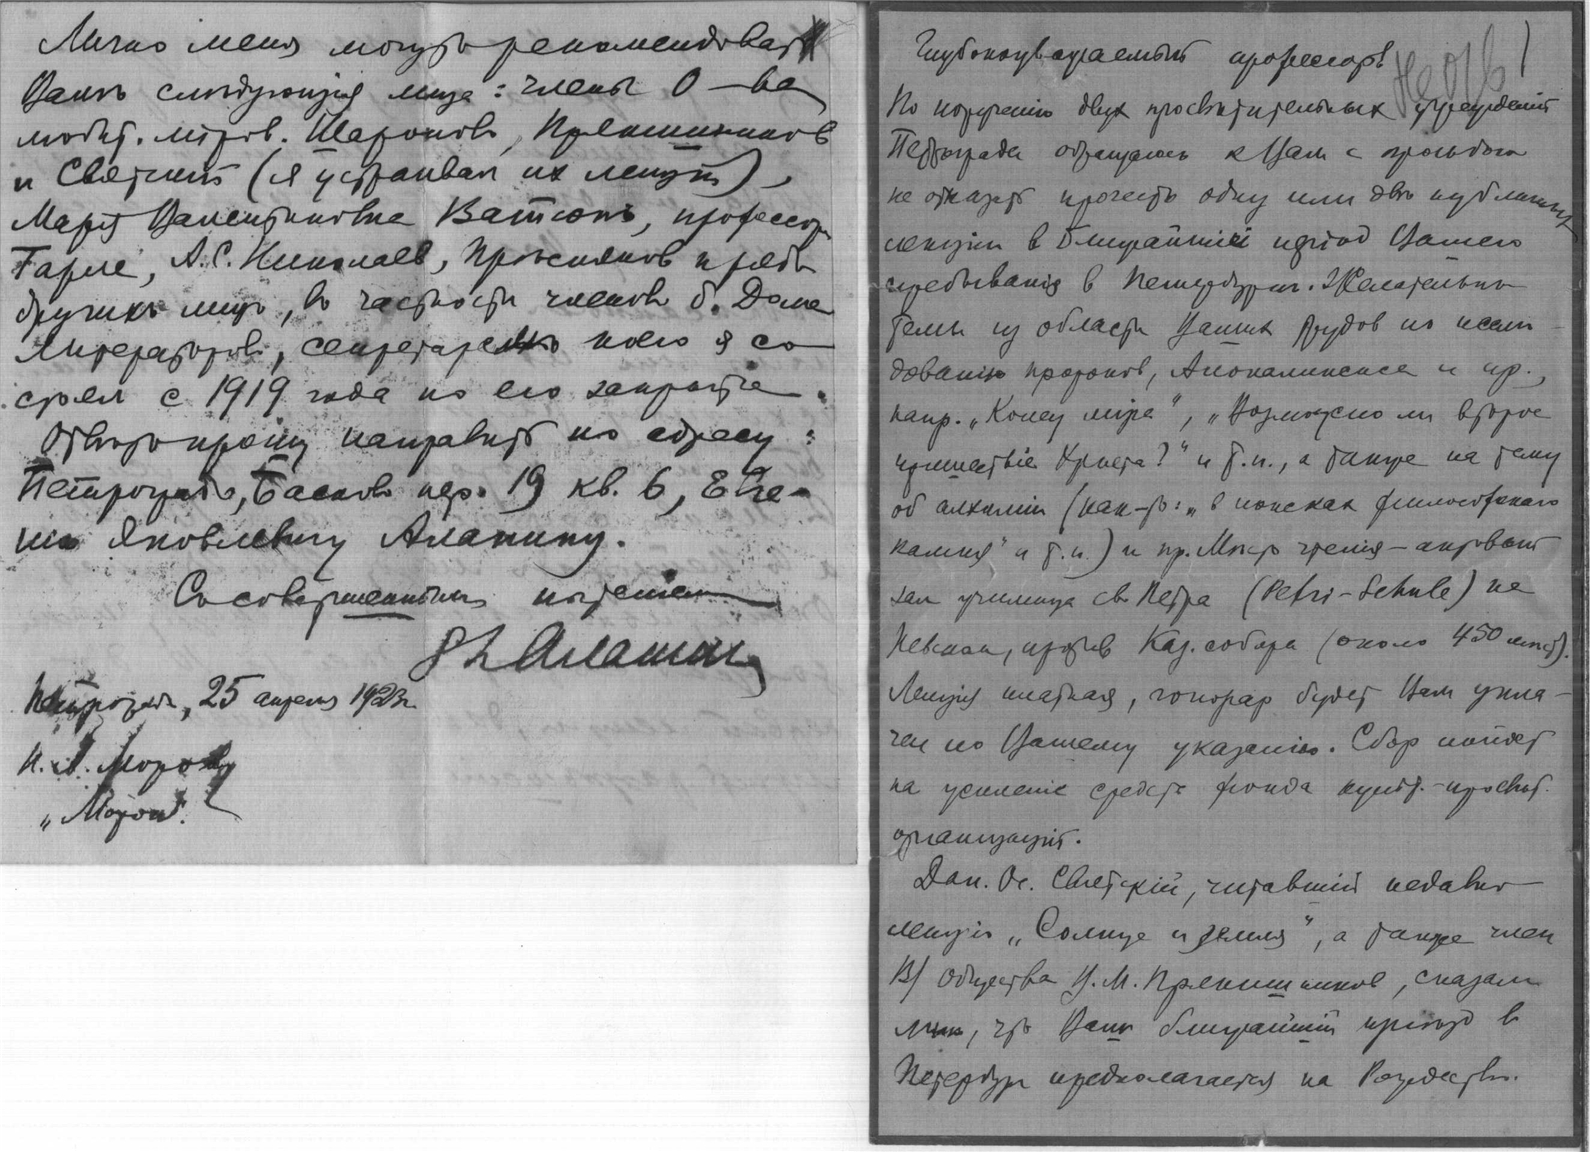 Лично меня могут рекомендовать
Вам следующия лица: члены О-ва
любит. міров. Шаронов, Прянишников
и Святский (я устраивал их лекции),
Мария Валентиновна Ватсон, профессора
Тарле, А.С. Николаев, Пресняков и ряд
других лиц, в частности членов б. Дома
Литераторов, секретарем коего я со-
стоял с 1919 года по его закрытие.
Ответ прошу направить по адресу:
Петроград, Басков пер. 19 кв. 6, Евге-
нию Яковлевичу Алапину.
С совершенным почтением
Алапин
Петроград, 25 апреля 1923 г.
Н. А. Морозову
"Молот".
Глубокоуважаемый профессор!
Не отв
По поручению двух просветительных учреждений
Петрограда обращаюсь к Вам с просьбою
не отказать прочесть одну или две публичных
лекции в ближайший приезд Вашего
пребывания в Петербурге. Желательны
темы из области Ваших трудов по иссле-
дованию пророков, Апокалипсиса и пр.,
напр. "Конец міра", "Возможно ли второе
пришествіе Христа?" и т.п., а также на тему
об алхиміи (как-то: "в поисках философскаго
камня" и т.п.) и пр. Место чтения - актовый
зал училища св. Петра (Petri-Schule) на
Невском, против Каз. собора (около 450 мест).
Лекция платная, гонорар будет Вам упла-
чен по Вашему указанию. Сбор пойдет
на усиление средств фонда культ.-просвет.
организаций.
Дан. Ос. Святский, читавший недавно
лекцию "Солнце и земля", а также член
В/ Общества В. М. Прянишников, сказали
мне, что Ваш ближайший приезд в
Петербург предполагается на Рождество.